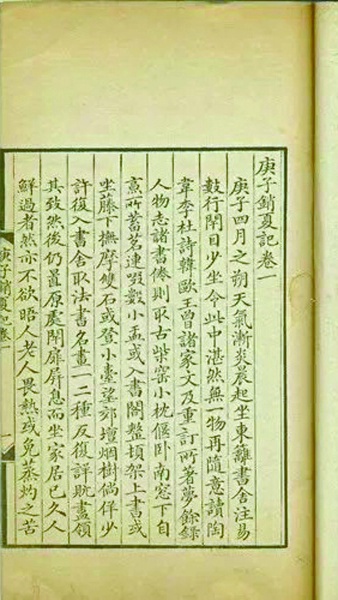 庚子銷夏記卷一
庚子四月之朔天氣漸炎晨起坐東籬書舍注易
數行閉目少坐令此中湛然無一物再隨意讀陶
韋李杜詩韓歐王曾諸家文及重訂所著夢餘錄
人物志諸書倦則取古柴窑小枕偃臥南窓下自
烹所蓄茗連啜數小盂或入書閣整頓架上書或
坐藤下撫摩雙石或登小臺望郊壇烟樹徜徉少
許復入書舍取法書名畫一二種反復詳翫盡領
其致然後仍置原處閉扉屏息而坐家居已久人
鮮過者然亦不欲晤人老人畏熱或免蒸灼之苦
庚子銷夏記卷一
一